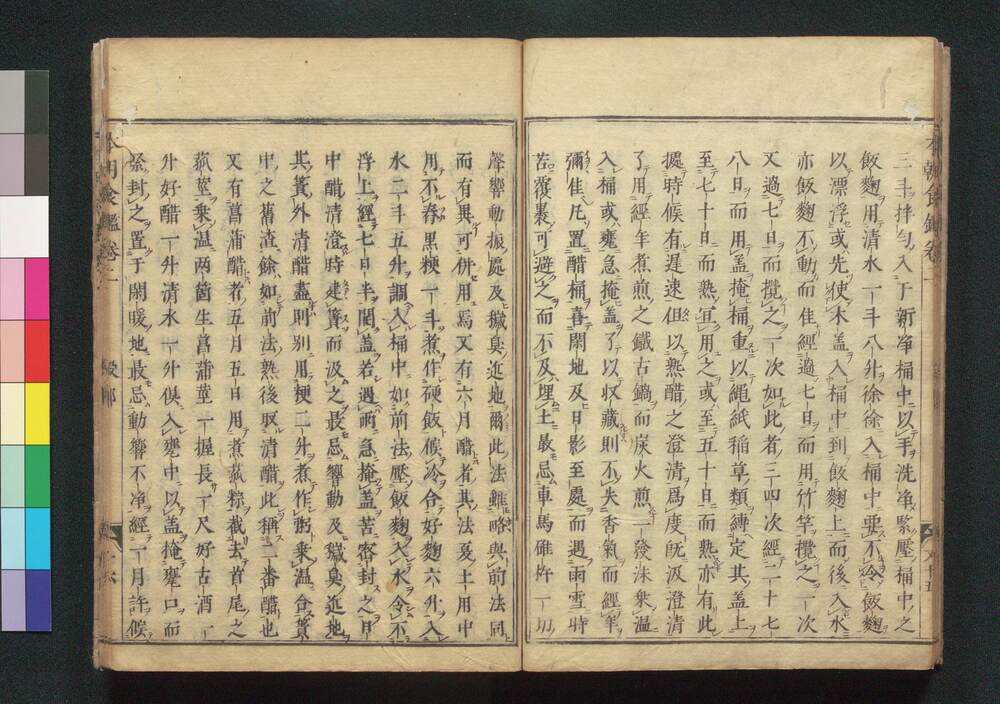 三斗拌勻入于新淨桶中以手洗淨緊壓桶中之
飯麴用清水一斗八升徐徐入桶中要不冷飯麴
以漂浮或先使木盖入桶中到飯麴上而後入水
亦飯麴不動而佳經過七日而用竹竿攪之一次
又過七日而攪之一次如此者三四次經二十七
八日而用盖掩桶重以繩紙稲草類縛定其盖上
至七十日而熟宜用之或至五十日而熟亦有此
據時候有遲速但以熟醋之澄清爲度既汲澄清
了用經年煮煎之鐵古鍋而炭火煎一發沫乗温
入桶或甕急掩盖了以収藏則不失香氣而經年
彌佳凡置醋桶喜閑地及日影至處而遇雨雪時
苫覆裹可避之而不及埋土最忌車馬碓杵一切
聲響動振處及穢臭近地爾此法雖略與前法同
而有異可併用焉又有六月醋者其法夏土用中
用不舂黒粳一斗煮作硬飯候冷合好麴六升入
水二斗五升調入桶中如前法壓飯麴入水令不
浮上經七日半開盖若遇雨急掩盖苦密封之日
中醋清澄時建簀而汲之最忌響動及穢臭近地
其簀外清醋盡則别用粳二升煮作粥乗温合簀
中之舊渣餘如前法熟後取清醋此稱二番醋也
又有菖蒲醋者五月五日用煮菰粽裁去首尾之
菰葉乗温两箇生菖蒲莖一握長一尺好古酒一
升好醋一升清水一升俱入甕中以盖掩甕口而
緊封之置于閑暖地最忌動響不淨經一月許候